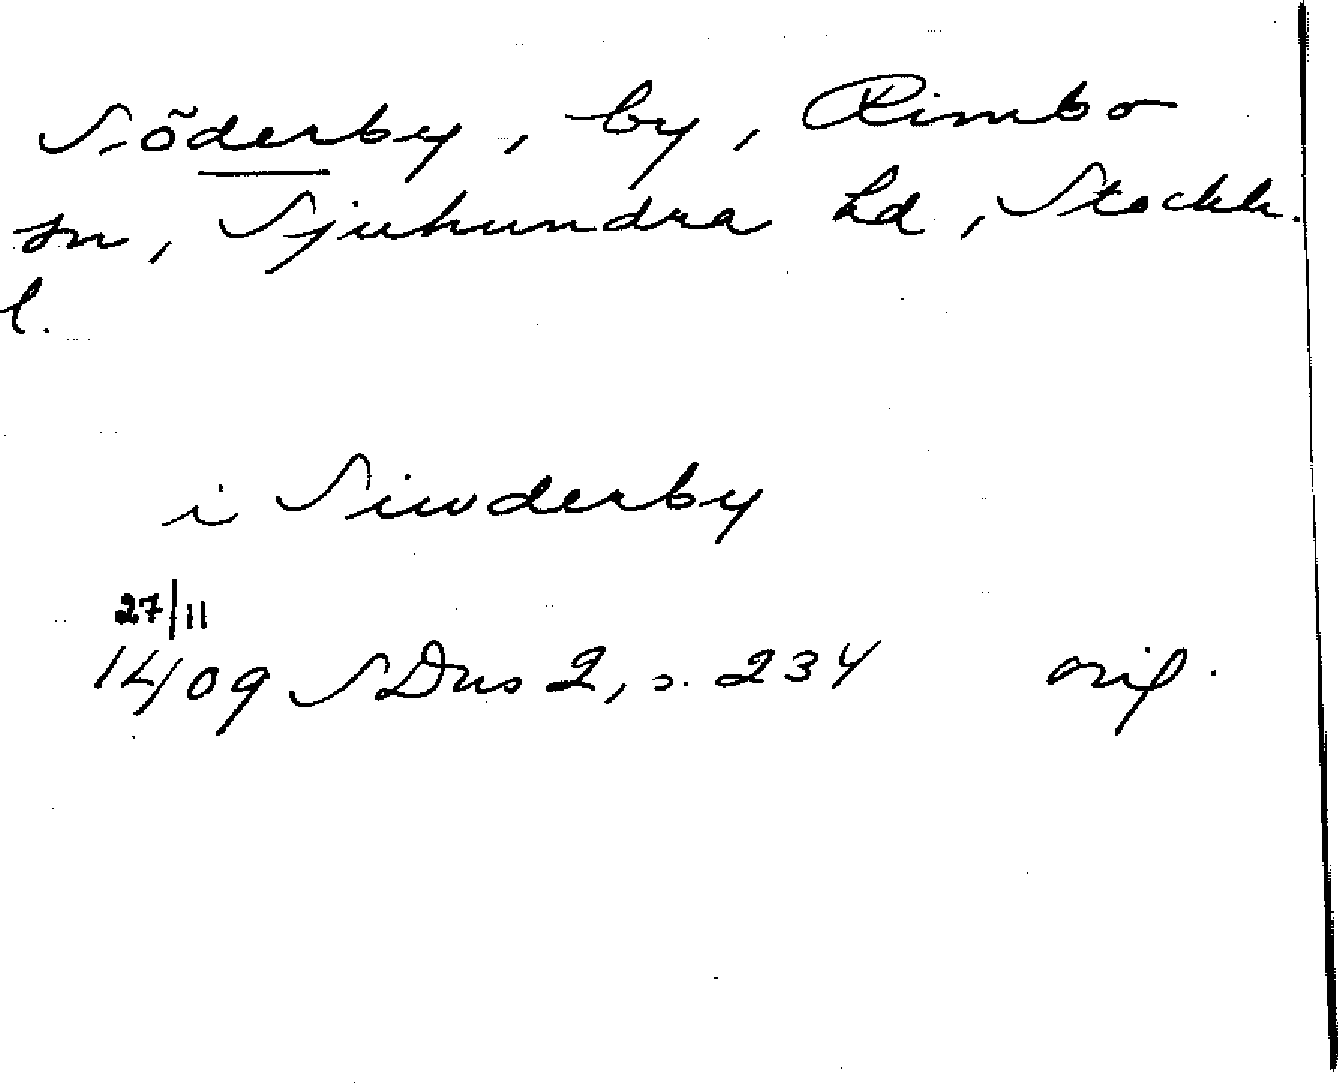 Söderby, by, Rimbo
sn, Sjuhundra hd, Stockh.
l.
i Siwderby
27/11
1409 SDns 2, s. 234 orig.